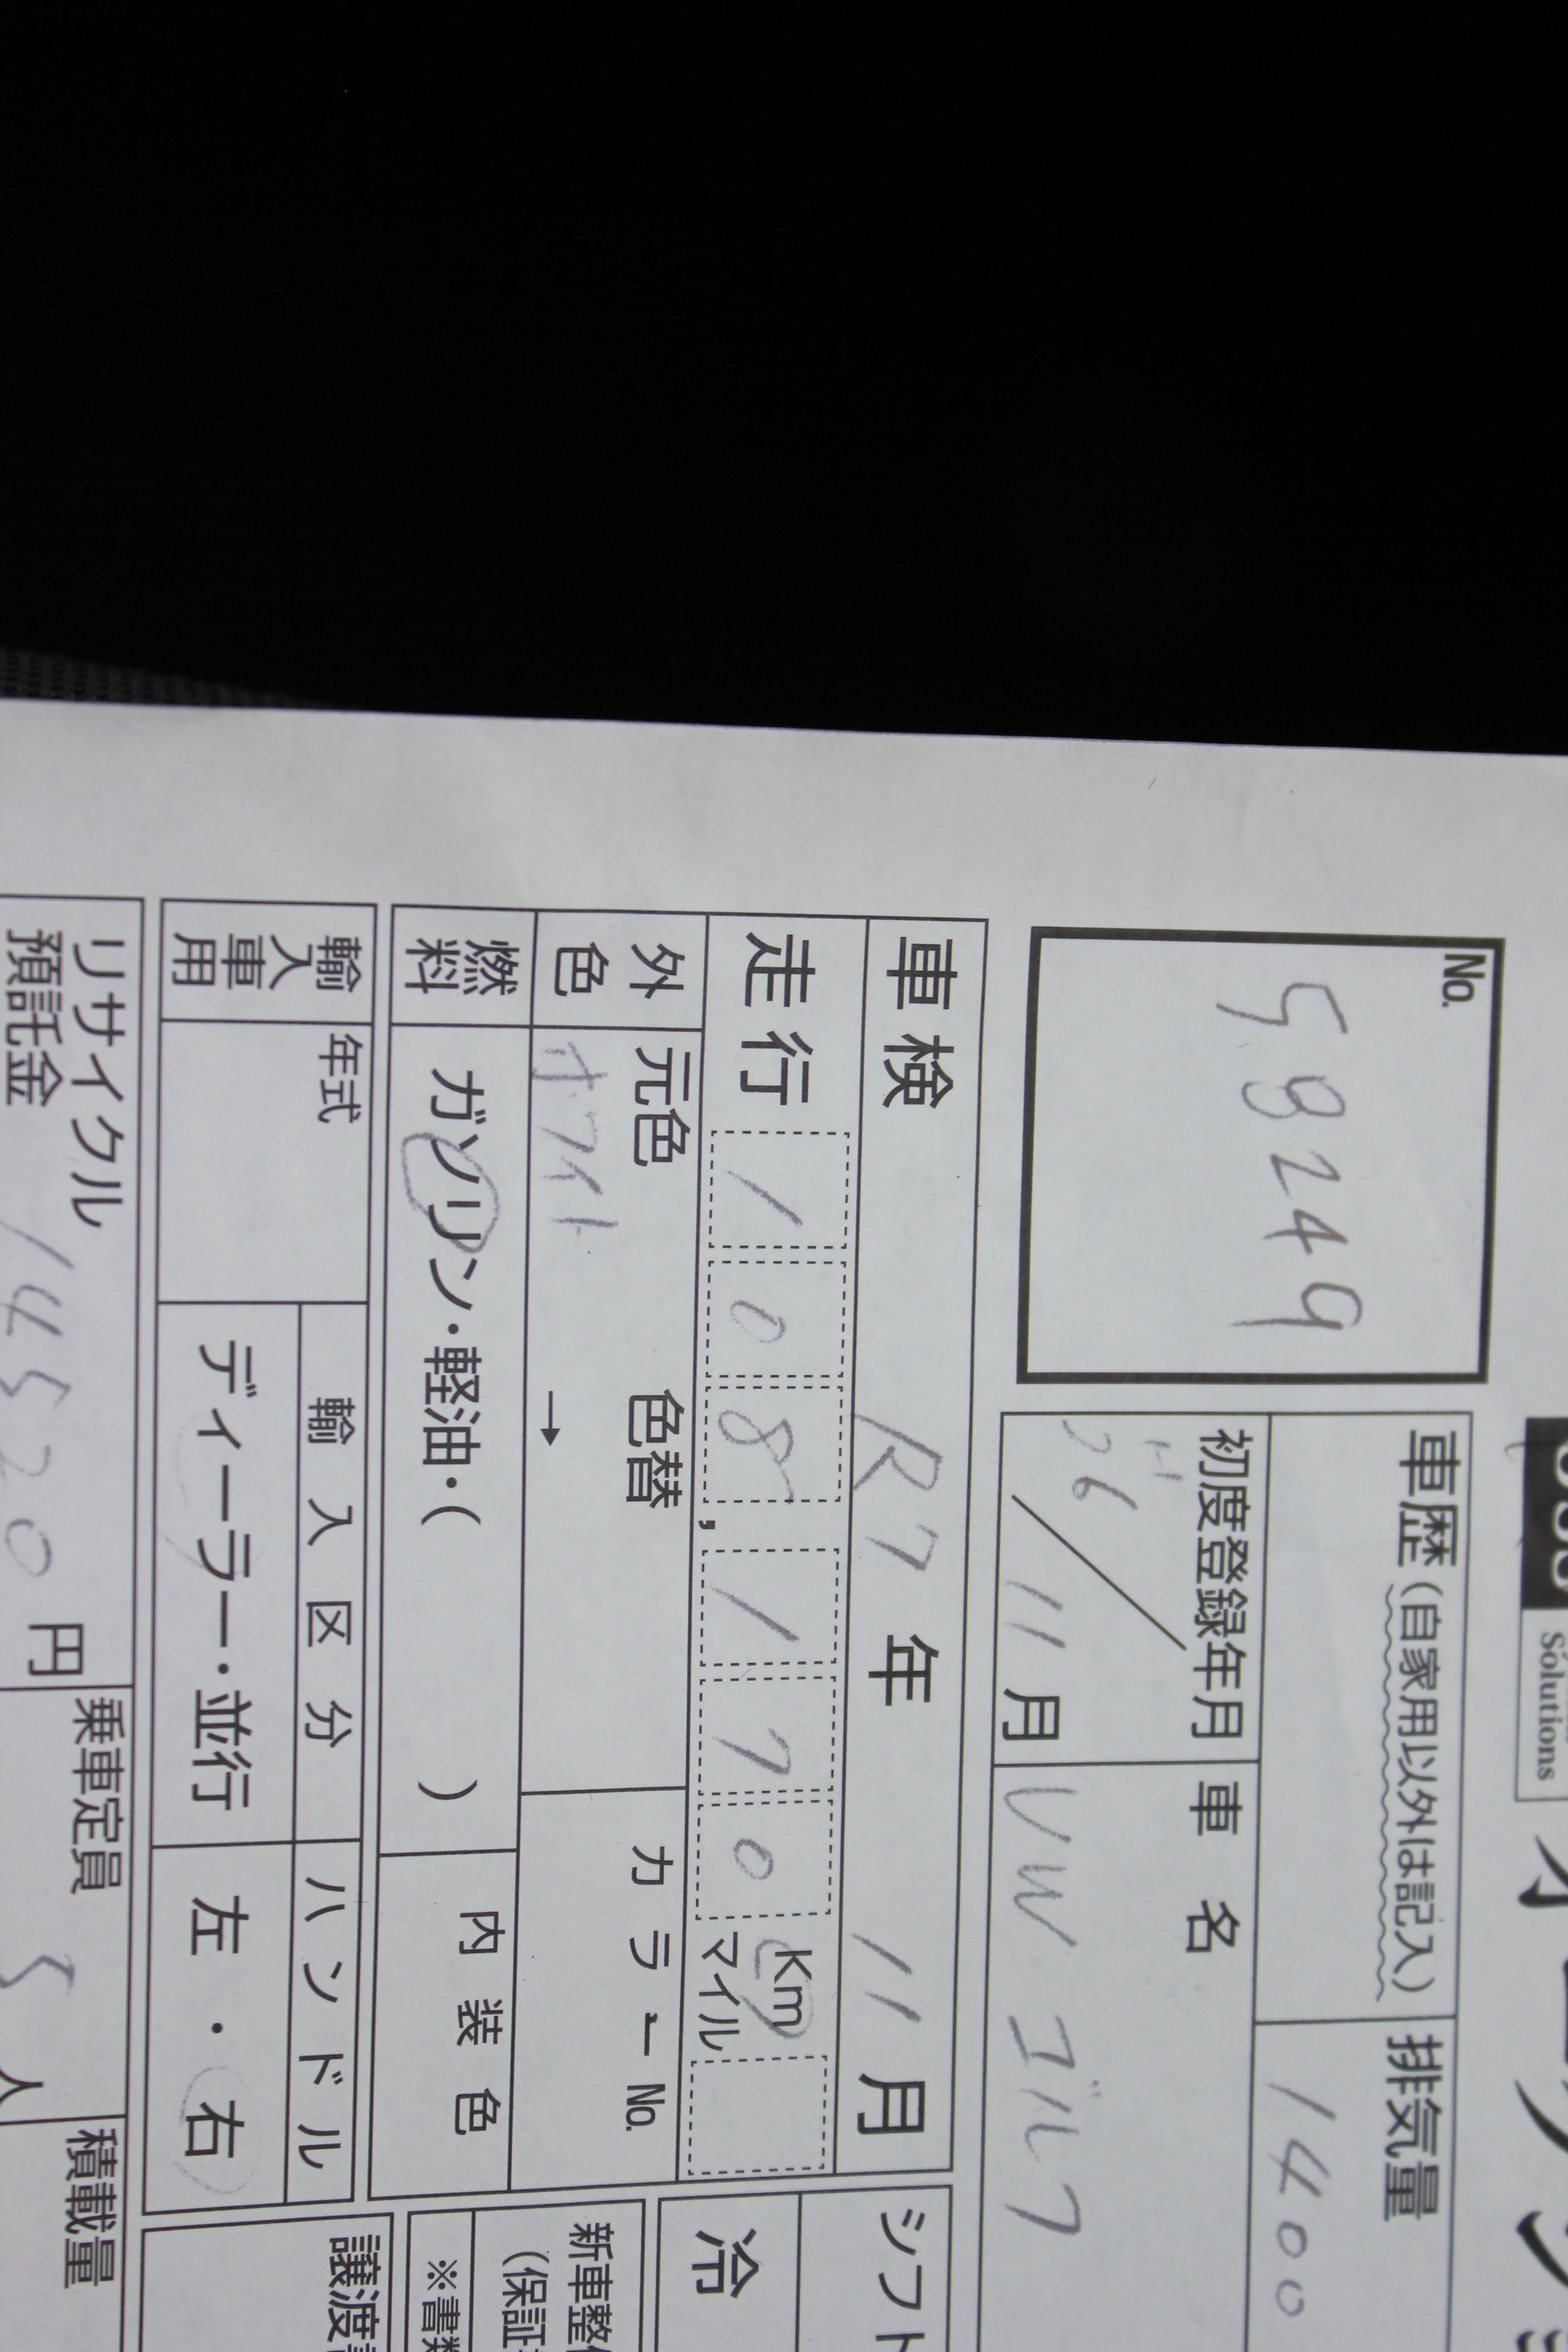 Solutions
No.
58249
車歴（自家用以外は記入）
排気量
1400
初度登録年月
H
26/11月
車名
VW ゴルフ
車検 R7年 11月
走行 108,170 Km マイル
シフト
冷
外色
元色
ホワイト
色替
→
カラーNo.
燃料
ガソリン・軽油・（ ）
内装色
輸入車用
年式
輸入区分
ディーラー・並行
ハンドル
左・右
リサイクル預託金
14520円
乗車定員
5人
積載量